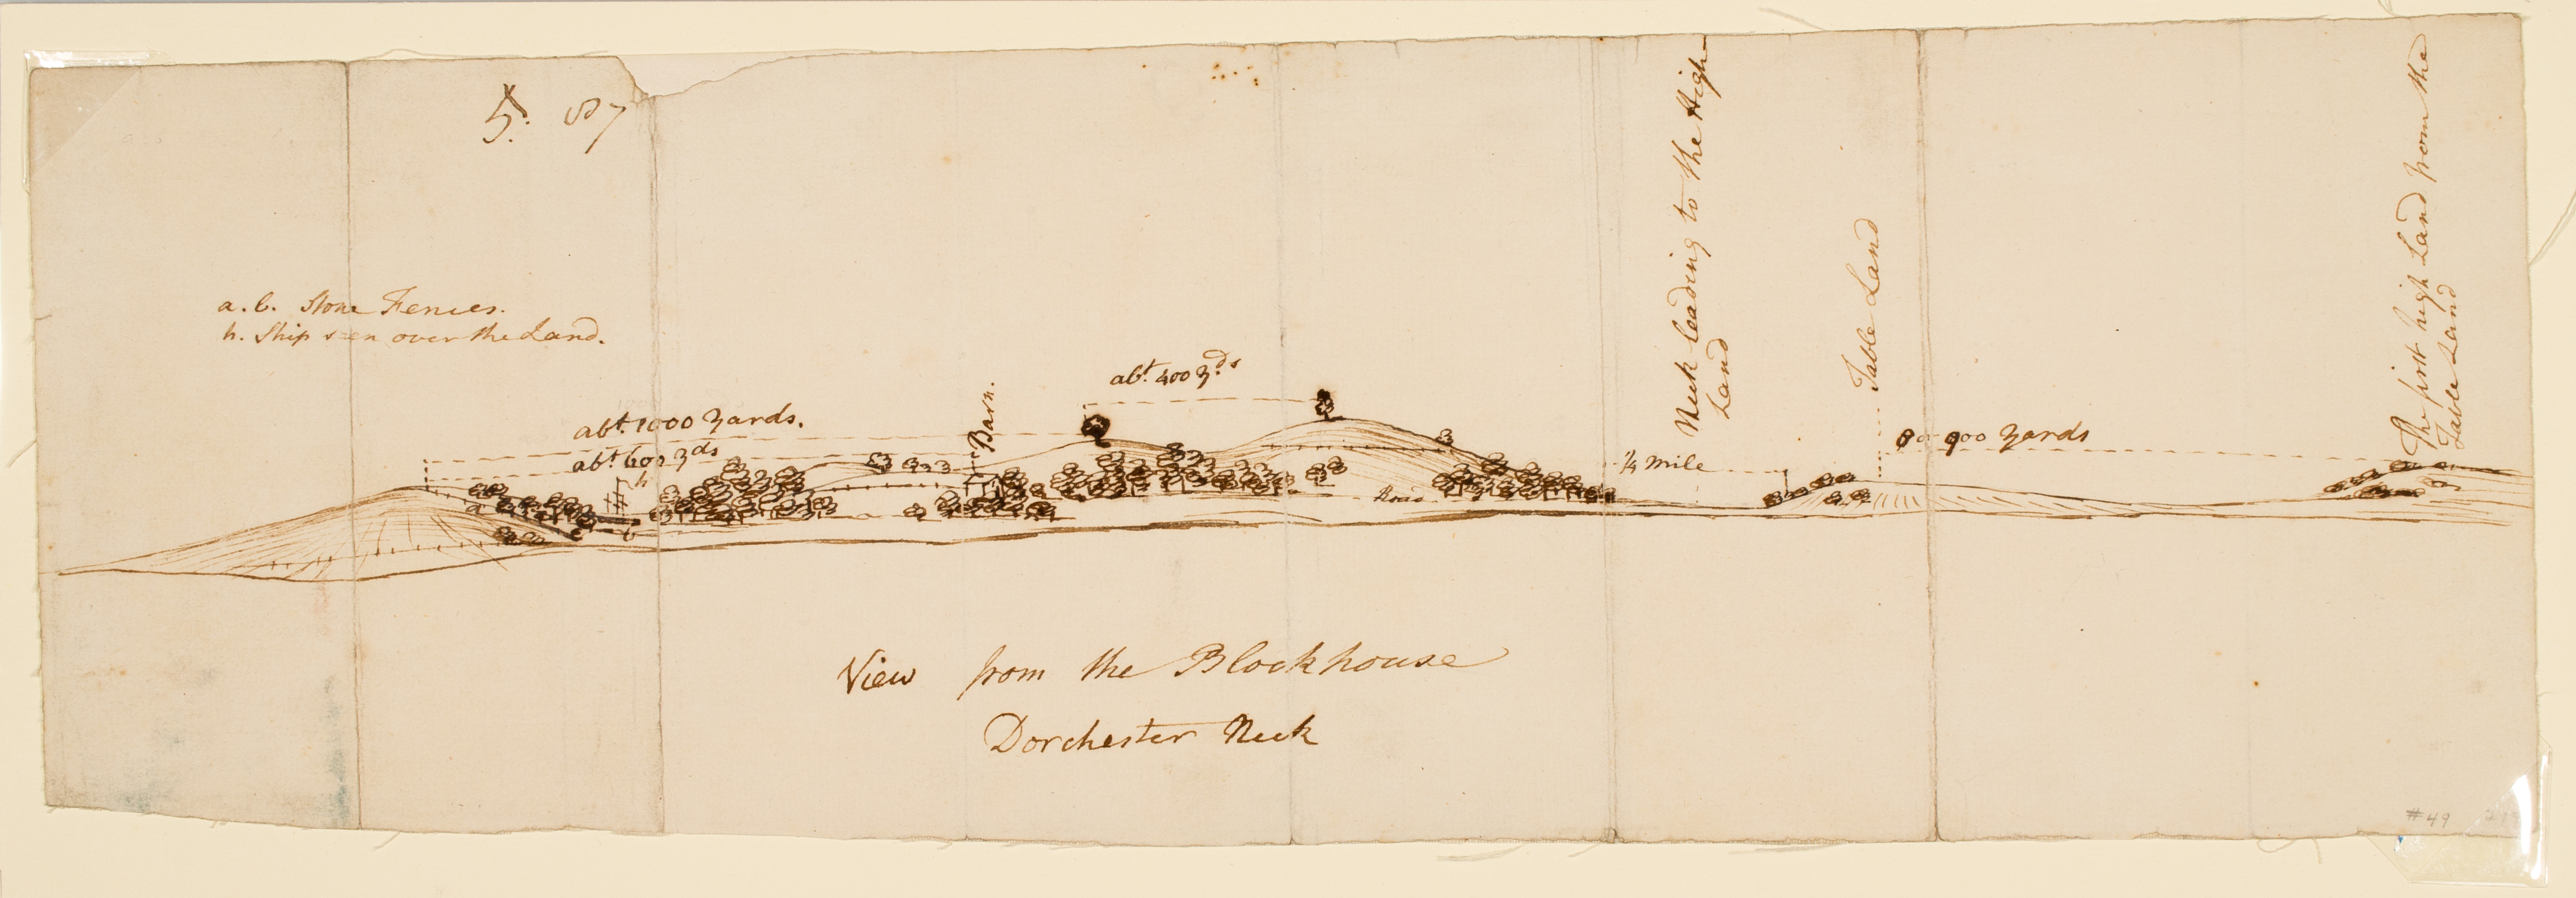 5. 87
a. b. Stone Fences.
h. Ship seen over the Land.
abt. 400 yds
abt. 1000 yards.
abt 600 yds
h
Barn.
a
b
Road
1/4 mile
Neck leading to the High
Land
Table Land
900 yards
The first high Land from the
Table Land
View from the Blockhouse
Dorchester Neck
#49